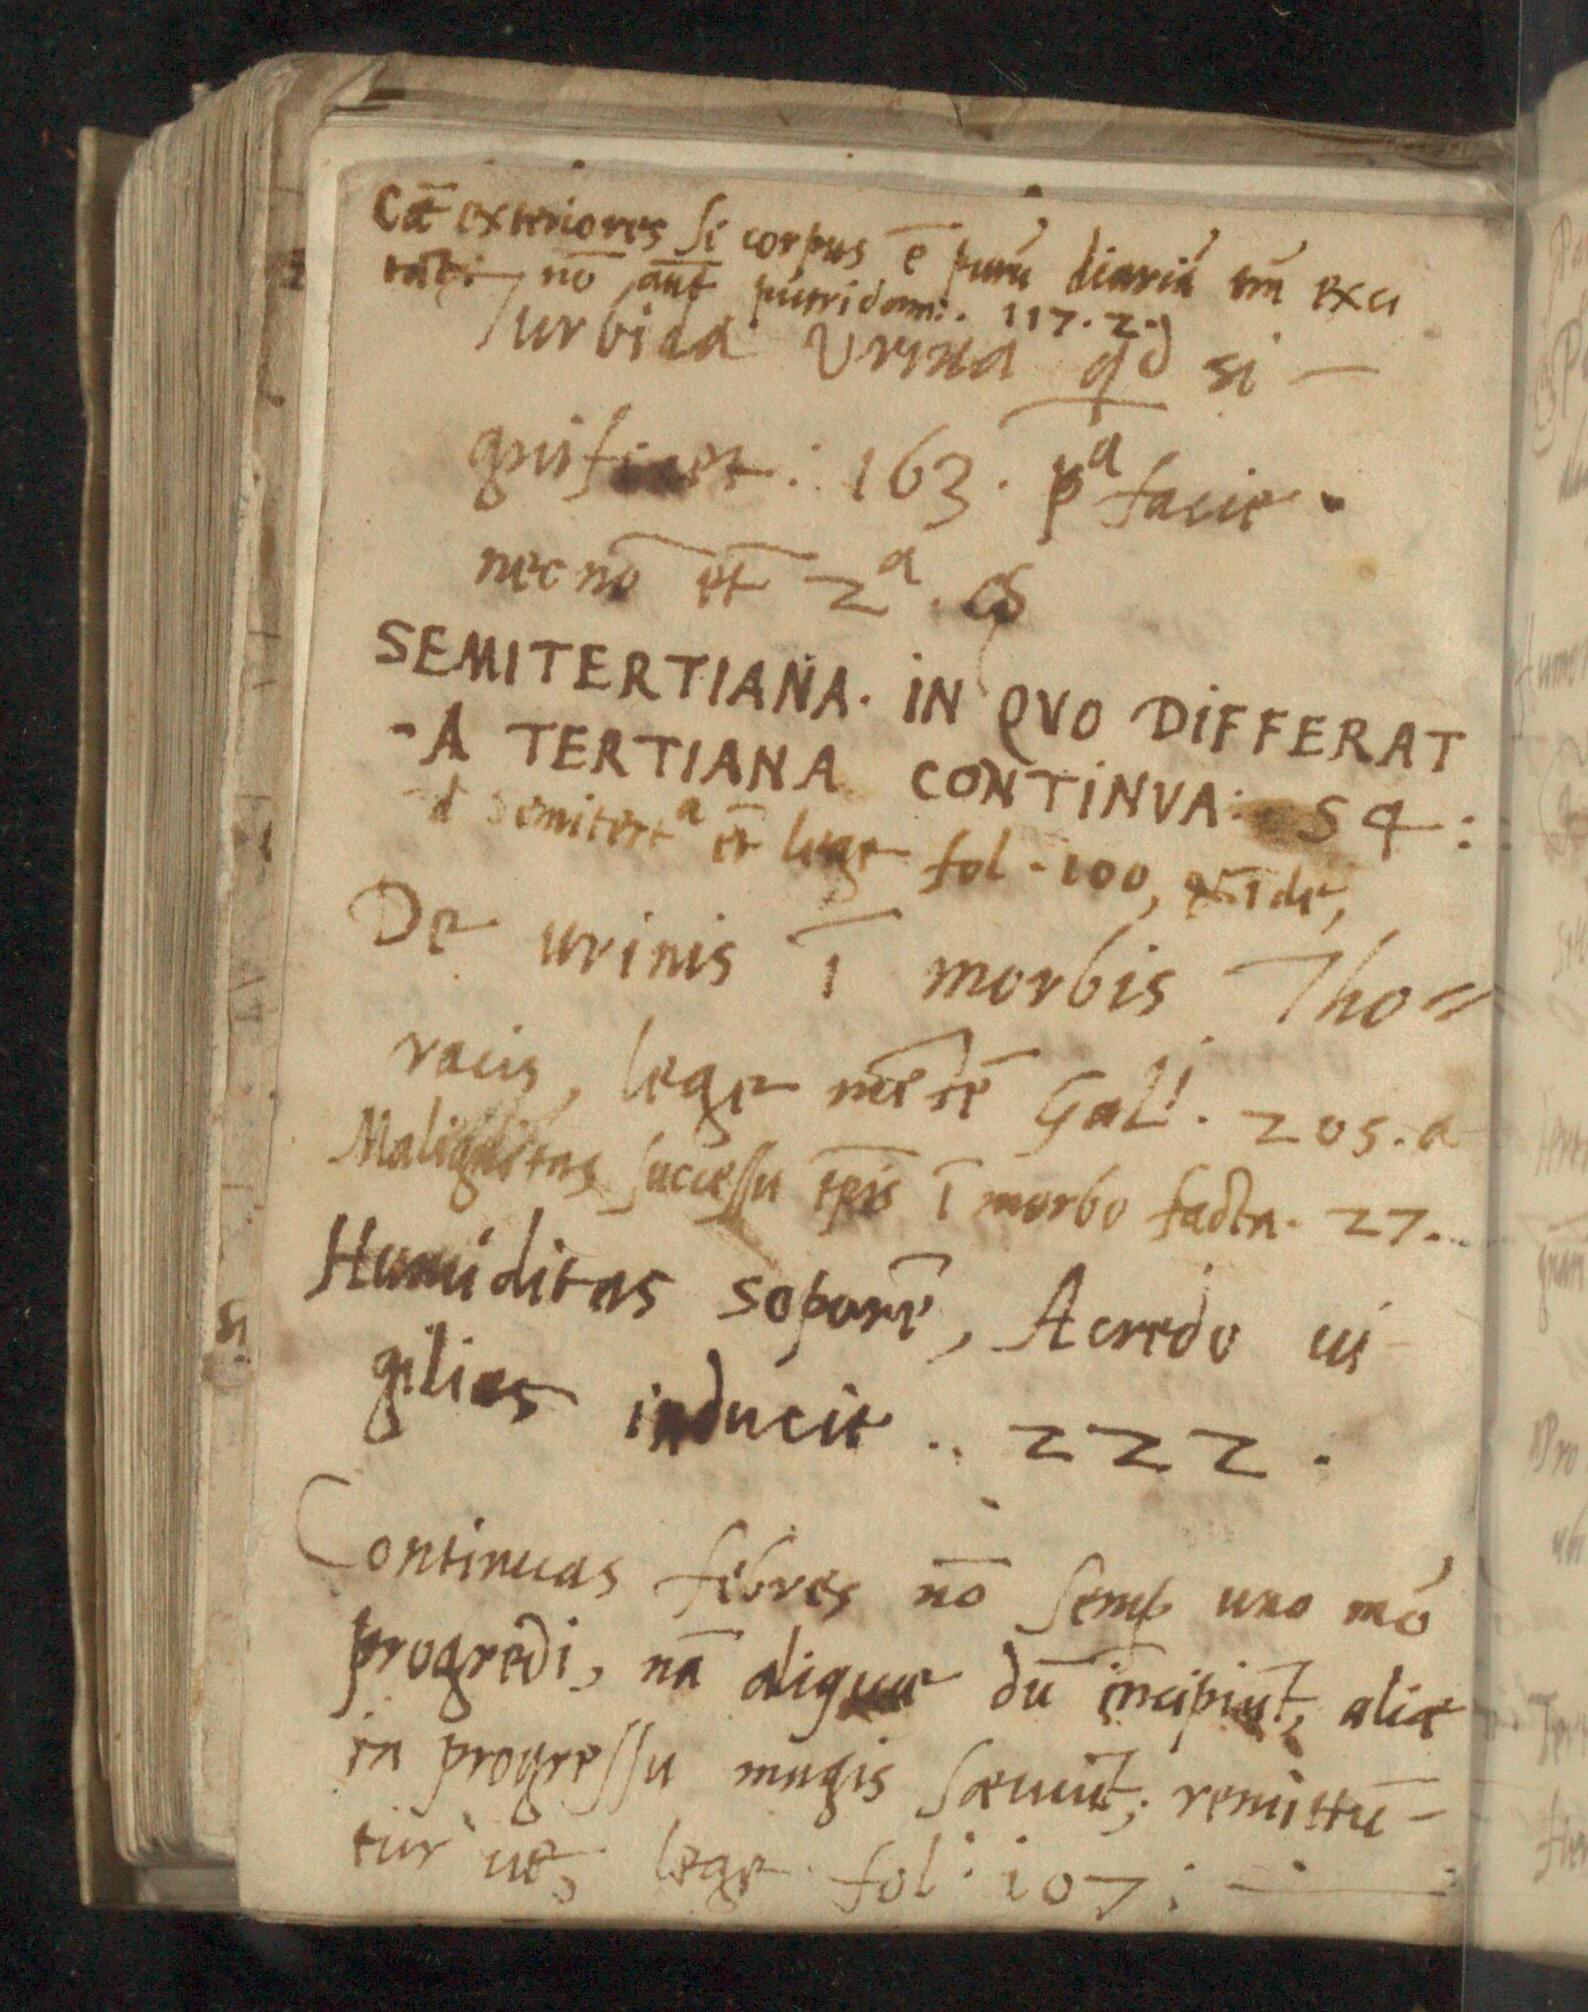 Cāē exteriores si corpus ē purū diariā tm̄ exci
non aut̄ putridam: 117. 2.
Turbida Vrina qd si-
gnificet: 163. pª facie.
nec nō et 2ª.
SEMITERTIANA. IN QVO DIFFERAT
-A TERTIANA CONTINVA: 54:
d semitertª et̄ lege fol. 100,
De urinis ī morbis Tho=
racis, lege mētē Gall. 205. a
Malignitas successu tp̄is ī morbo facta. 27.
Humiditas soporē, Acredo ui
gilias inducit.. 222.
Continuas febres nō semp uno mō
progredi, nā aliquae dū incipiūt, aliae
in progressu magis saeuiūt; remittū-
tur ue, lege fol: 107: